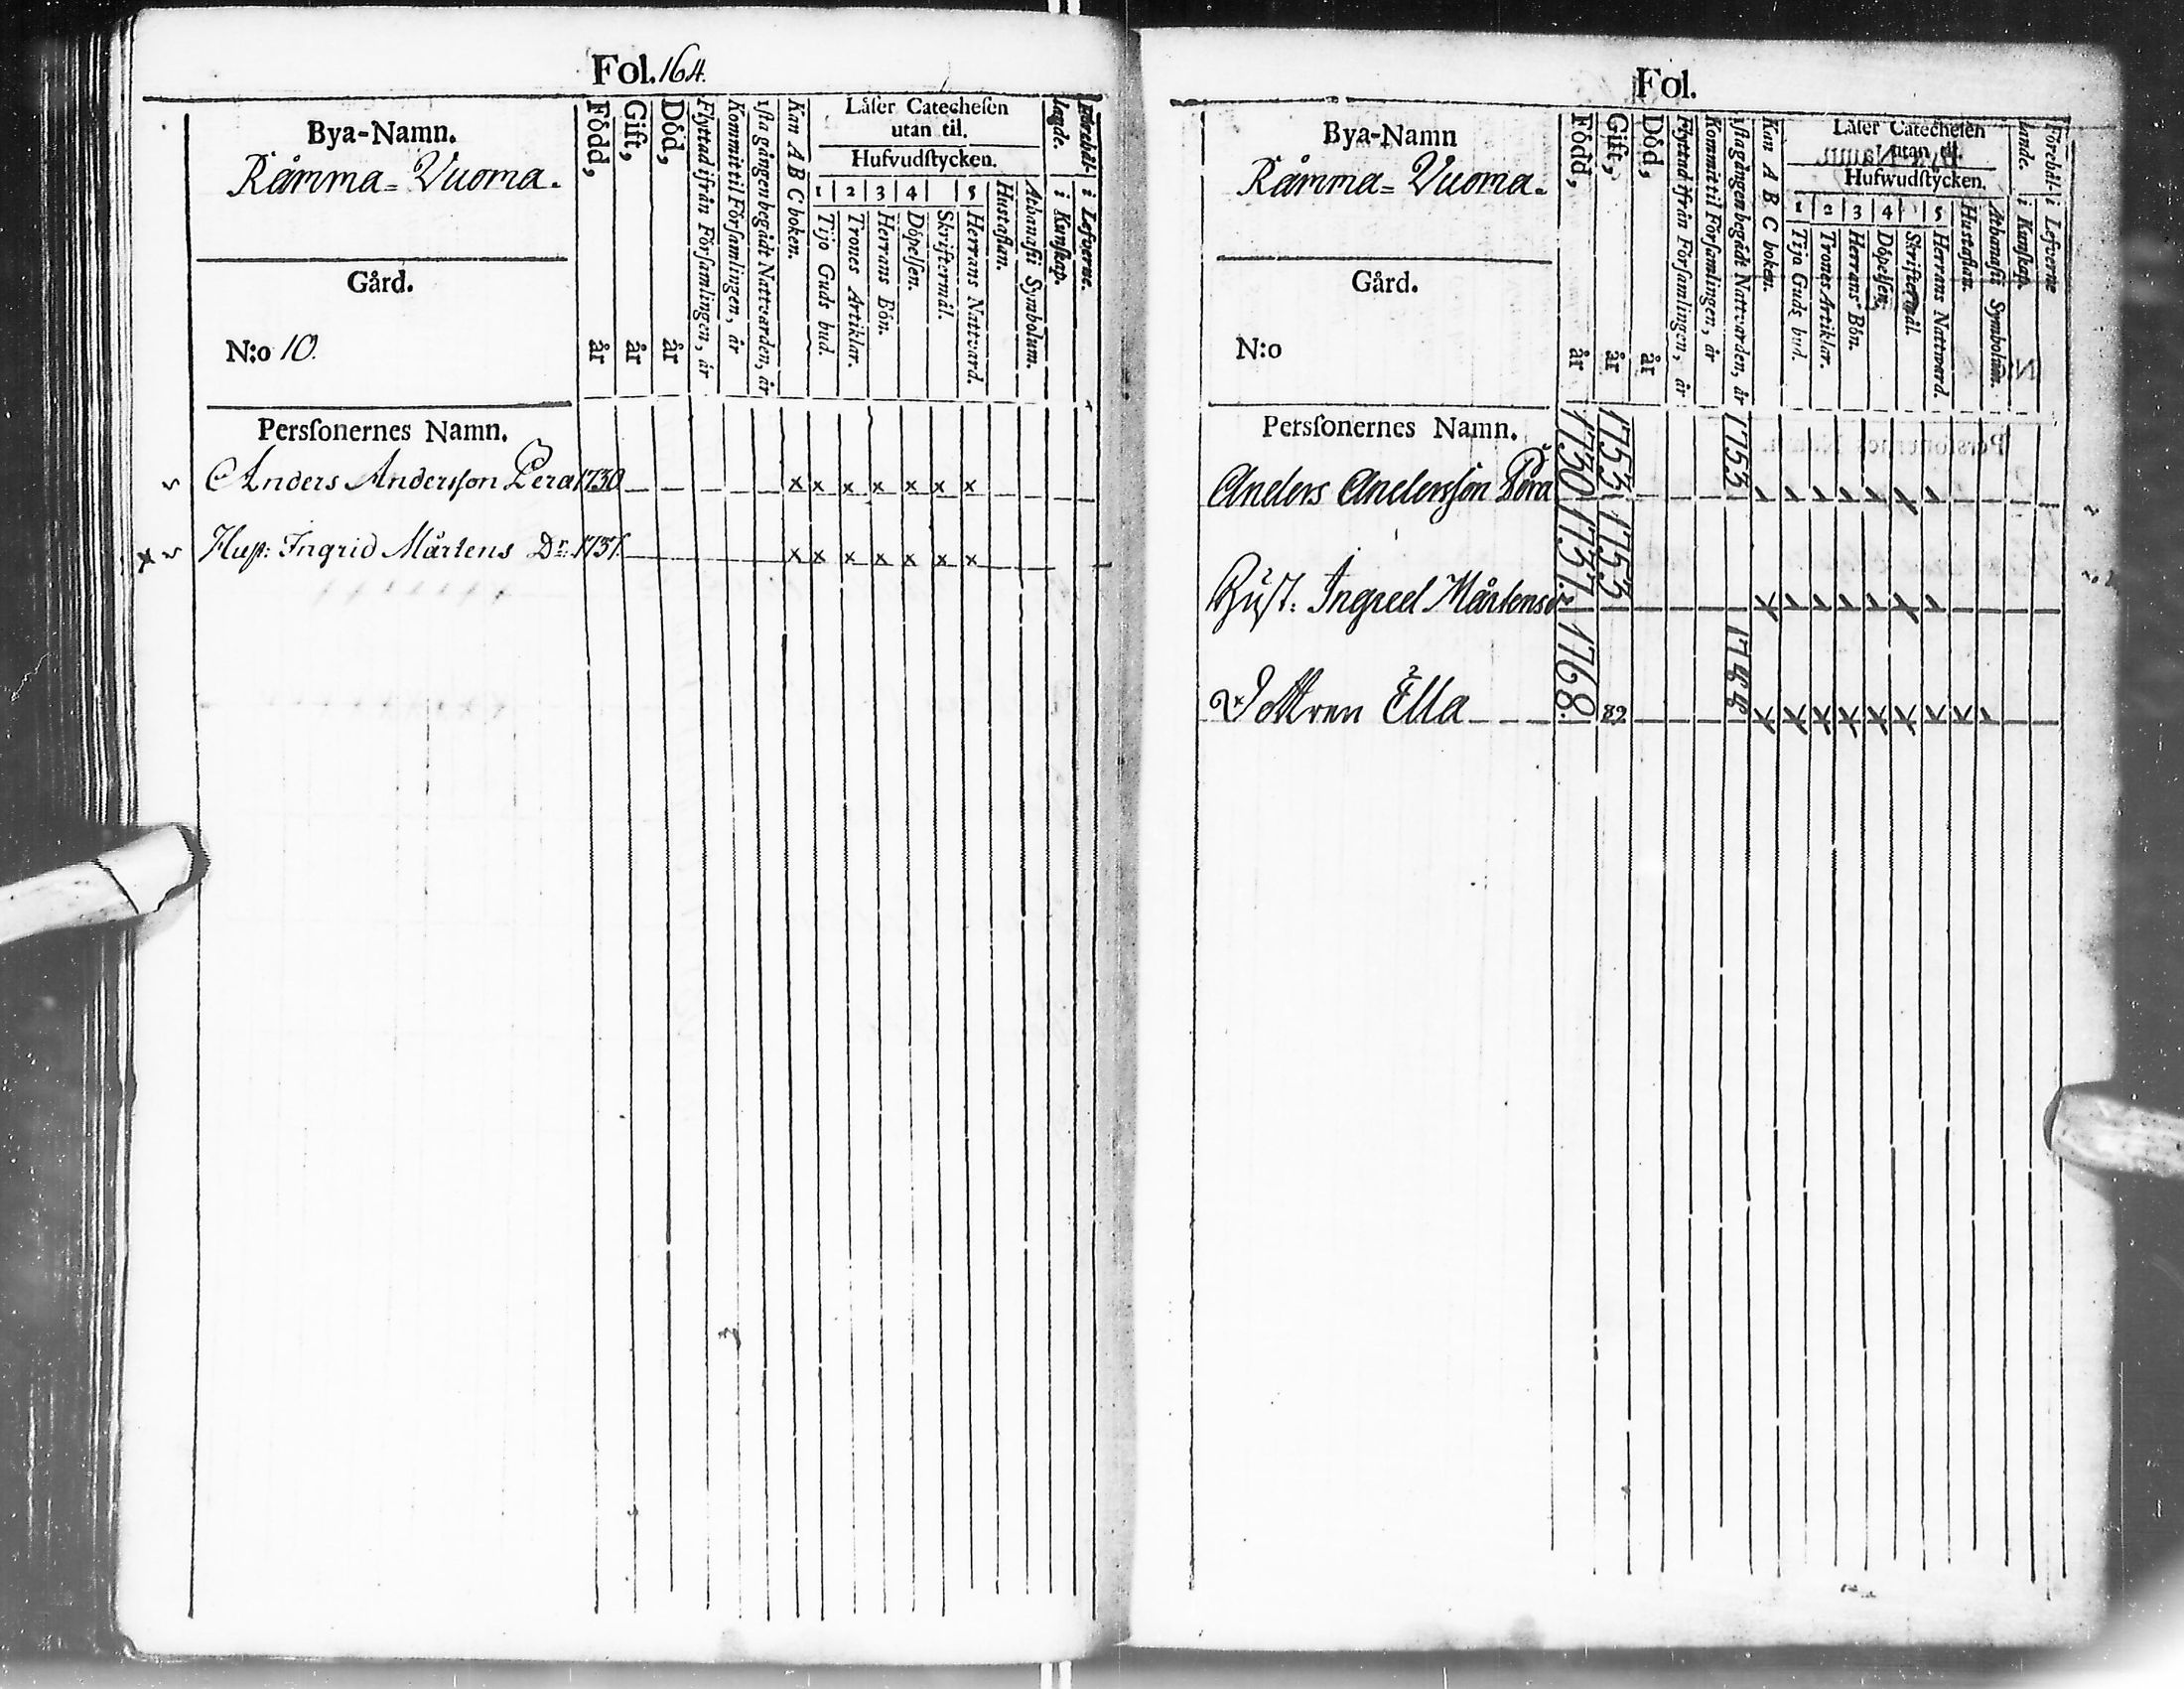 Fol. 164.
Bya-Namn.
Råmma= Vuoma.
Gård.
N:o 10.
Född, år
Gift, år
Död, år
Flyttad ifrån Församlingen, år
Kommit til Församlingen, år
1sta gången begådt Nattvarden, år
Kan A B C boken.
Låſer Catecheſen
utan til.
Hufvudſtycken.
1 2 3 4 5
Tijo Guds bud.
Trones Artiklar.
Herrans Bön.
Döpelſen.
Skriftermål.
Herrans Nattvard.
Huſtaflan.
Athanaſii Symbolum.
i Kunſkap.
i Lefverne.
Perſonernes Namn.
Anders Anderſson Pera 1730 x x x x x x x
Huſt: Ingrid Mårtens Dr. 1737. x x x x x x x
Fol.
Bya-Namn
Råmma= Vuoma.
Gård.
N:o
Född, år
Gift, år
Död, år
Flyttad ifrån Församlingen, år
Kommit til Församlingen, år
1sta gången begådt Nattvarden, år
Kan A B C boken.
Låſer Catecheſen
utan til.
Hufwudſtycken.
1 2 3 4 5
Tijo Guds bud.
Trones Artiklar.
Herrans Bön.
Döpelſen.
Skriftermål.
Herrans Nattward.
Huſtaflan.
Athanaſii Symbolum.
Förehål-
lande.
i Kunſkap.
i Lefverne
Perſonernes Namn.
Anders Anderſson Pära 1730 1753 1753
Huſt: Ingred Mårtensdr 1737. 1753
Dottren Ella 1768. 89 1788